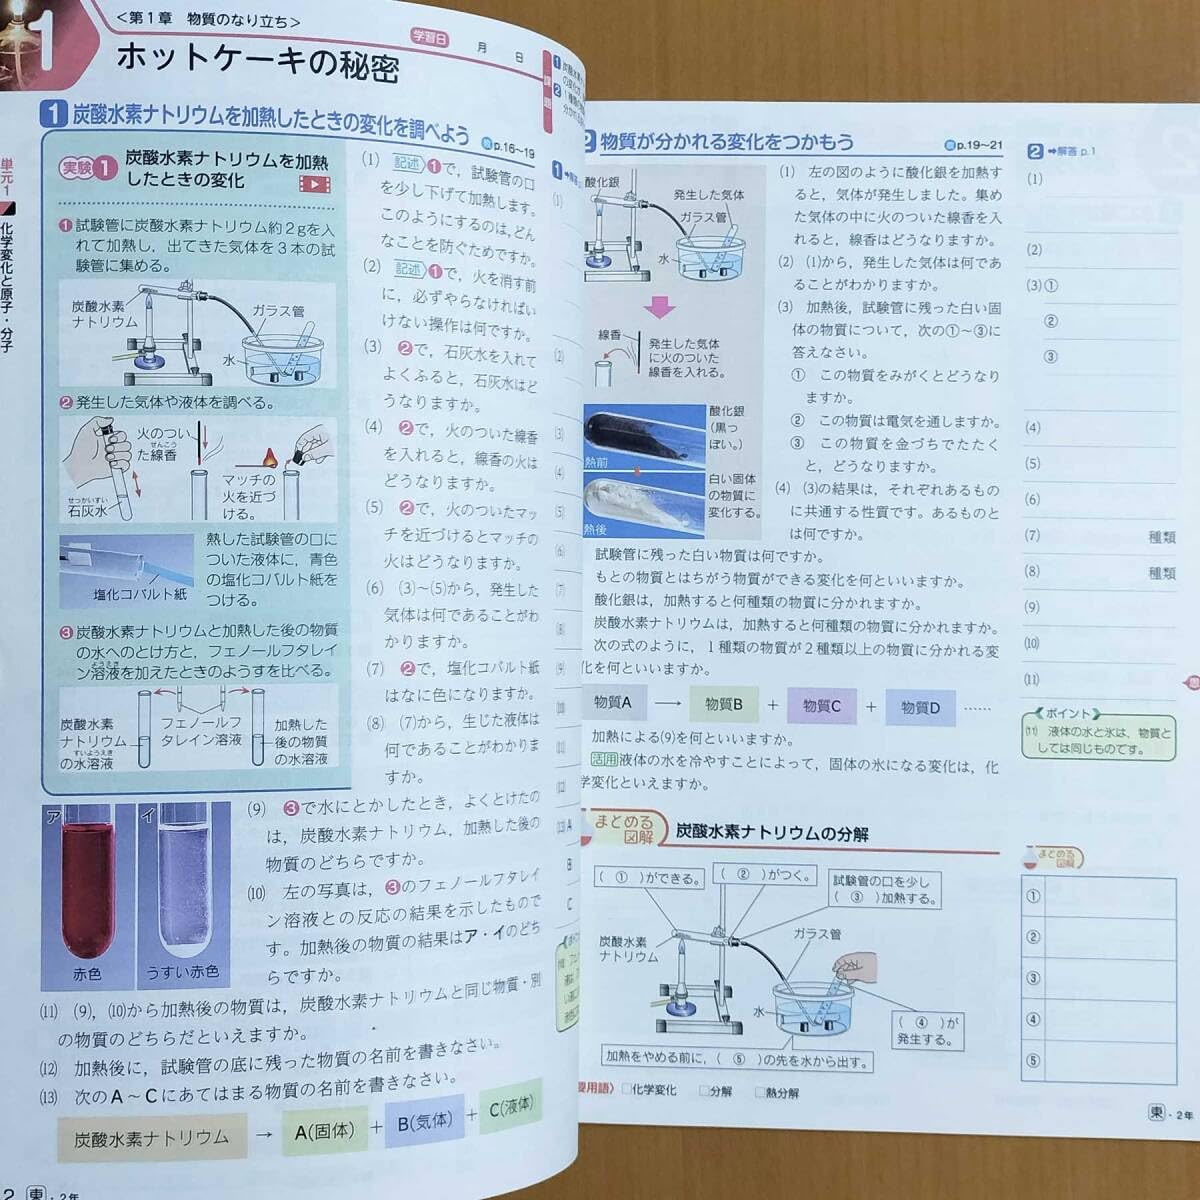 1
<第1章 物質のなり立ち>
ホットケーキの秘密
学習日 月 日
課題
1
2
単元1 化学変化と原子・分子
1 炭酸水素ナトリウムを加熱したときの変化を調べよう
p.16〜19
実験1 炭酸水素ナトリウムを加熱
したときの変化
❶試験管に炭酸水素ナトリウム約2gを入
れて加熱し，出てきた気体を3本の試
験管に集める。
炭酸水素
ナトリウム
ガラス管
水
❷発生した気体や液体を調べる。
火のつい
せんこう
た線香
マッチの
火を近づ
ける。
せっかいすい
石灰水
熱した試験管の口に
ついた液体に，青色
の塩化コバルト紙を
つける。
塩化コバルト紙
❸炭酸水素ナトリウムと加熱した後の物質
の水へのとけ方と，フェノールフタレイ
ようえき
ン溶液を加えたときのようすを比べる。
炭酸水素
ナトリウム
すいようえき
の水溶液
フェノールフ
タレイン溶液
加熱した
後の物質
の水溶液
(1) 記述 ❶で，試験管の口
を少し下げて加熱します。
このようにするのは，どん
なことを防ぐためですか。
(2) 記述 ❶で，火を消す前
に，必ずやらなければい
けない操作は何ですか。
(3) ❷で，石灰水を入れて
よくふると，石灰水はど
うなりますか。
(4) ❷で，火のついた線香
を入れると，線香の火は
どうなりますか。
(5) ❷で，火のついたマッ
チを近づけるとマッチの
火はどうなりますか。
(6) (3)〜(5)から，発生した
気体は何であることがわ
かりますか。
(7) ❷で，塩化コバルト紙
はなに色になりますか。
(8) (7)から，生じた液体は
何であることがわかりま
すか。
ア
イ
赤色
うすい赤色
(9) ❸で水にとかしたとき，よくとけたの
は，炭酸水素ナトリウム，加熱した後の
物質のどちらですか。
(10) 左の写真は，❸のフェノールフタレイ
ン溶液との反応の結果を示したもので
す。加熱後の物質の結果はア・イのどち
らですか。
(11) (9)，(10)から加熱後の物質は，炭酸水素ナトリウムと同じ物質・別
の物質のどちらだといえますか。
(12) 加熱後に，試験管の底に残った物質の名前を書きなさい。
(13) 次のA〜Cにあてはまる物質の名前を書きなさい。
炭酸水素ナトリウム → A(固体) + B(気体) + C(液体)
2 東・2年
1 ➡解答
(1)
(2)
(3)
(4)
(5)
(6)
(7)
(8)
(9)
(10)
(11)
(12)
(13) A
B
C
2 物質が分かれる変化をつかもう
p.19〜21
酸化銀
発生した気体
ガラス管
水
線香
発生した気体
に火のついた
線香を入れる。
酸化銀
(黒っ
ぽい。)
熱前
白い固体
の物質に
変化する。
熱後
(1) 左の図のように酸化銀を加熱す
ると，気体が発生しました。集め
た気体の中に火のついた線香を入
れると，線香はどうなりますか。
(2) (1)から，発生した気体は何であ
ることがわかりますか。
(3) 加熱後，試験管に残った白い固
体の物質について，次の①〜③に
答えなさい。
① この物質をみがくとどうなり
ますか。
② この物質は電気を通しますか。
③ この物質を金づちでたたく
と，どうなりますか。
(4) (3)の結果は，それぞれあるもの
に共通する性質です。あるものと
は何ですか。
試験管に残った白い物質は何ですか。
もとの物質とはちがう物質ができる変化を何といいますか。
酸化銀は，加熱すると何種類の物質に分かれますか。
炭酸水素ナトリウムは，加熱すると何種類の物質に分かれますか。
次の式のように，1種類の物質が2種類以上の物質に分かれる変
化を何といいますか。
物質A → 物質B + 物質C + 物質D ……
加熱による(9)を何といいますか。
活用 液体の水を冷やすことによって，固体の氷になる変化は，化
学変化といえますか。
まとめる図解 炭酸水素ナトリウムの分解
( ① )ができる。
( ② )がつく。
試験管の口を少し
( ③ )加熱する。
炭酸水素
ナトリウム
ガラス管
水
( ④ )が
発生する。
加熱をやめる前に，( ⑤ )の先を水から出す。
要用語 □化学変化 □分解 □熱分解
2 ➡解答 p.1
(1)
(2)
(3)①
②
③
(4)
(5)
(6)
(7) 種類
(8) 種類
(9)
(10)
(11)
ポイント
(11) 液体の水と氷は、物質と
しては同じものです。
まとめる図解
①
②
③
④
⑤
東・2年